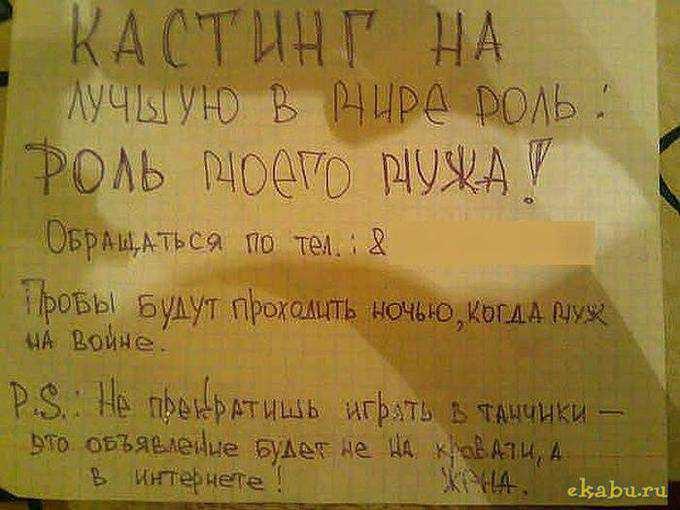 КАСТИНГ НА
ЛУЧШУЮ В МИРЕ РОЛЬ:
РОЛЬ МОЕГО МУЖА!
ОБРАЩАТЬСЯ ПО ТЕЛ.: 8
ПРОБЫ БУДУТ ПРОХОДИТЬ НОЧЬЮ, КОГДА МУЖ
НА ВОЙНЕ.
P.S.: НЕ ПРЕКРАТИШЬ ИГРАТЬ В ТАНЧИКИ —
ЭТО ОБЪЯВЛЕНИЕ БУДЕТ НЕ НА КРОВАТИ, А
В ИНТЕРНЕТЕ! ЖЕНА.
ekabu.ru